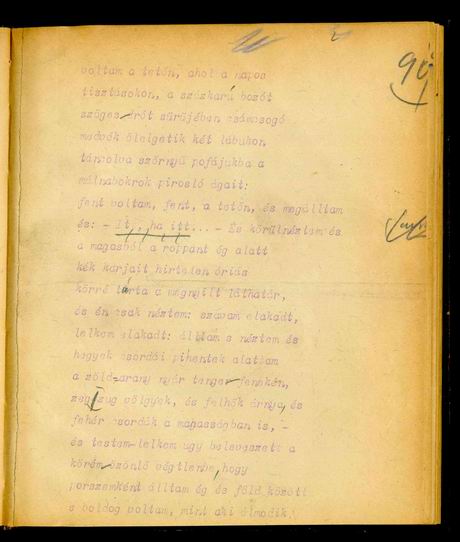 90
voltam a tetőn, ahol a napos
tisztásokon, a százkarú bozót
szöges drót sűrűjében csámcsogó
medvék ölelgetik két lábukon
táncolva szörnyű pofájukba a
málnabokrok pirosló ágait:
fent voltam, fent, a tetőn, és megálltam
és: - Itt, ha itt... - És körülnéztem és
a magasból a roppant ég alatt
kék karjait hirtelen óriás
körré tárta a megnyílt láthatár,
és én csak néztem: szavam elakadt,
lelkem elakadt: álltam s néztem és
hegyek csordái pihentek alattam
a zöld-arany nyár tenger fenekén,
zegzug völgyek, és felhők árnya, és
fehér csordák a magasságban is, -
és testem-lelkem úgy beleveszett a
körém ömlő végtelenbe, hogy
porszemként álltam ég és föld között
s boldog voltam, mint aki álmodik.